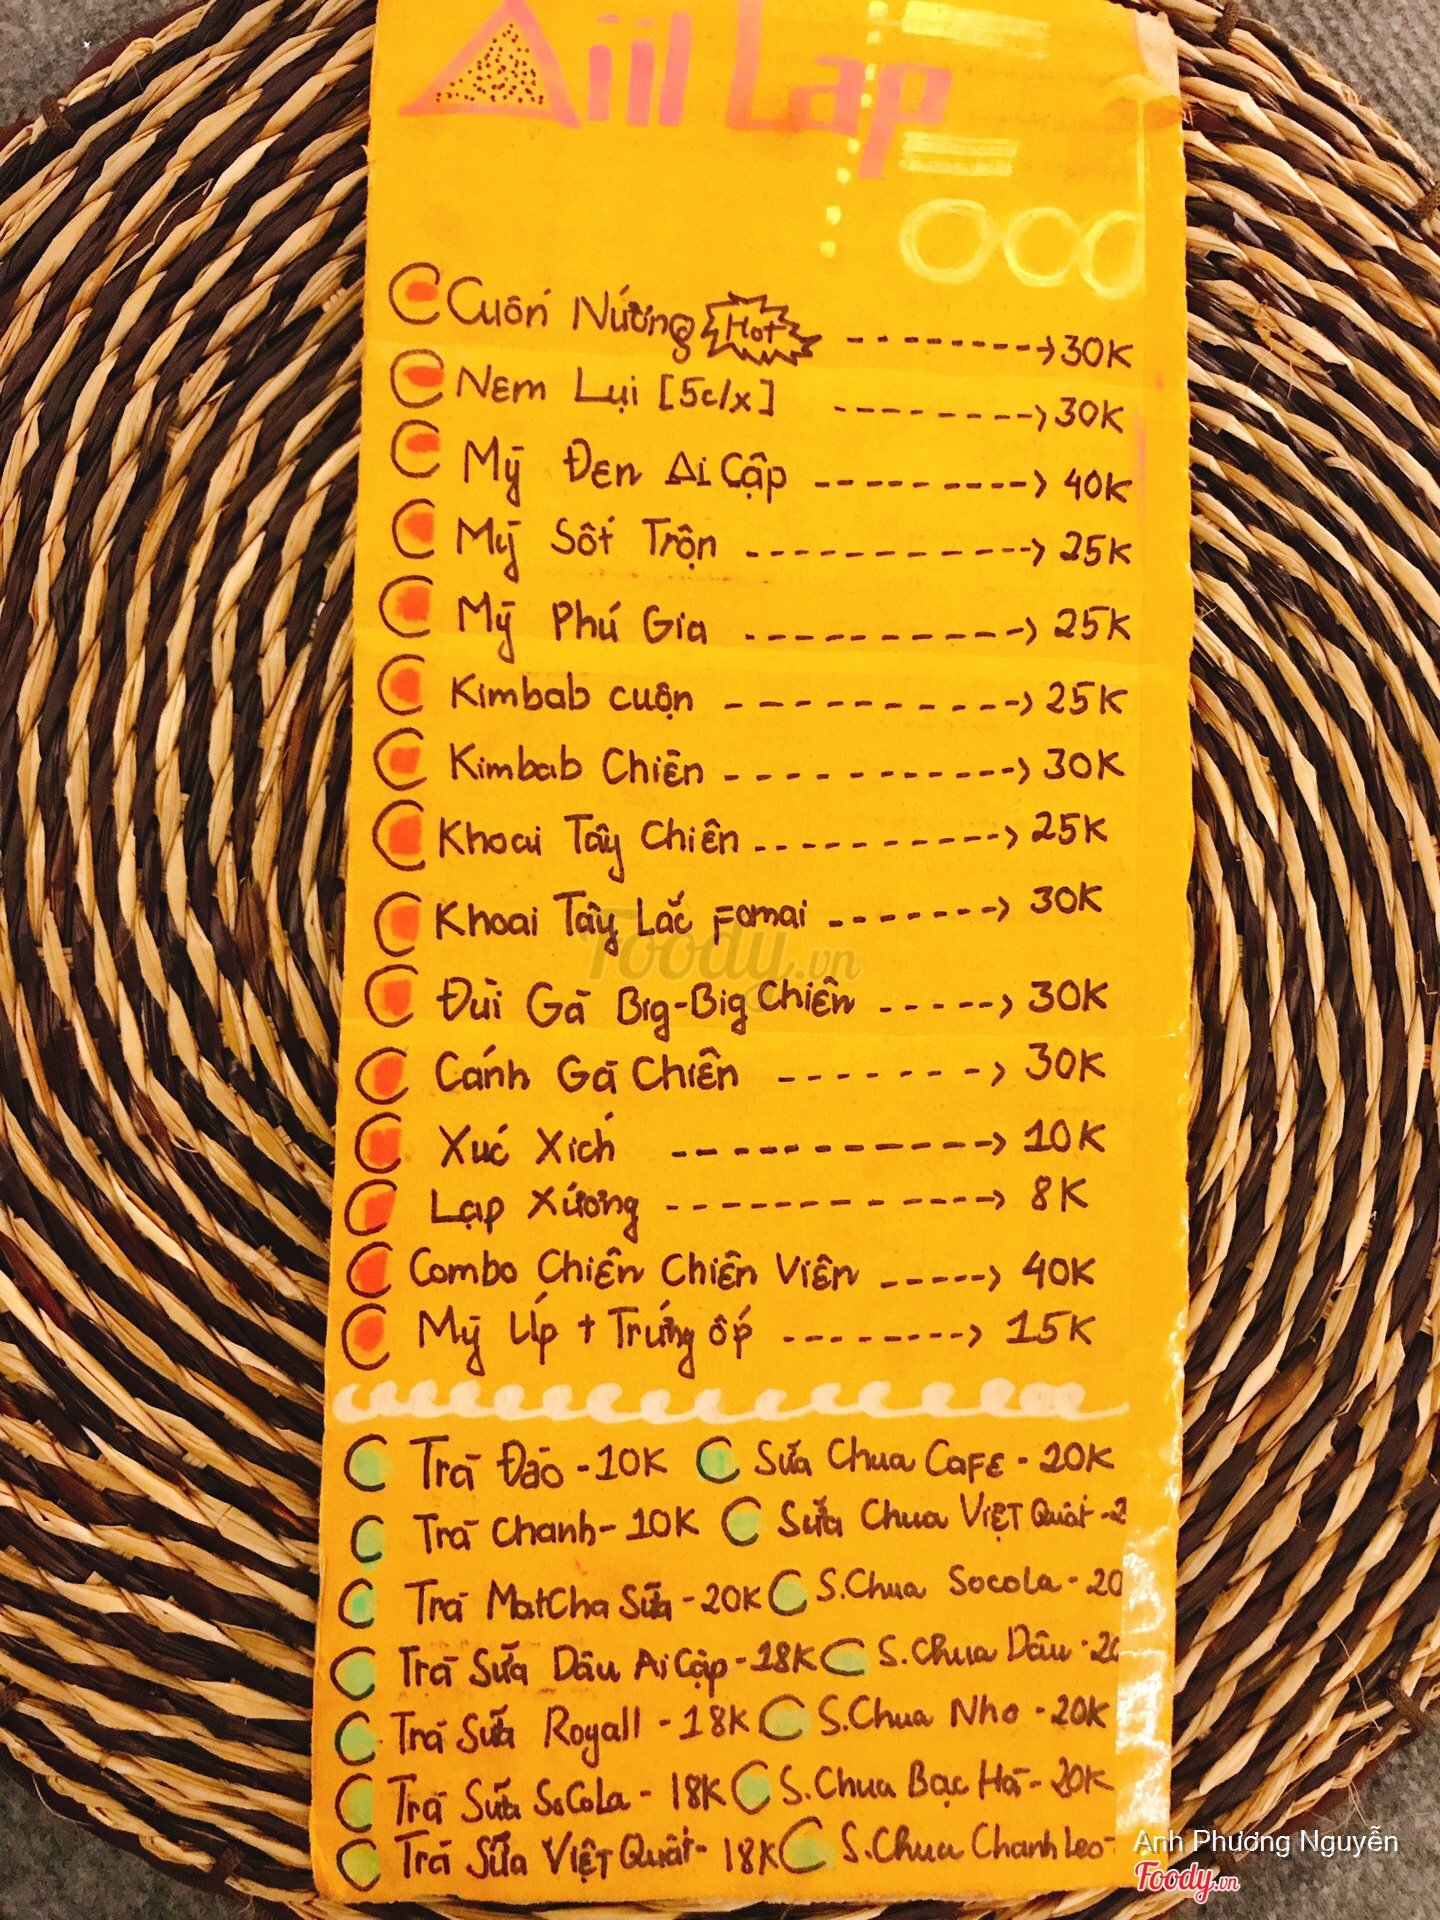 Aiil Lap
Cuốn Nướng Hot 30K
Nem Lụi [5c/x] 30K
Mỳ Đen Ai Cập 40K
Mỳ Sốt Trộn 25K
Mỳ Phú Gia 25K
Kimbab cuộn 25K
Kimbab Chiên 30K
Khoai Tây Chiên 25K
Khoai Tây Lắc Fomai 30K
Đùi Gà Big-Big Chiên 30K
Cánh Gà Chiên 30K
Xúc Xích 10K
Lạp Xưởng 8K
Combo Chiên Chiên Viên 40K
Mỳ Úp + Trứng ốp 15K
Trà Đào - 10K Sữa Chua CaFE - 20K
Trà Chanh - 10K Sữa Chua Việt Quất - 2
Trà MatCha Sữa - 20K S.Chua Socola - 20
Trà Sữa Dâu Ai Cập - 18K S.Chua Dâu - 20
Trà Sữa Royall - 18K S.Chua Nho - 20K
Trà Sữa SoCoLa - 18K S.Chua Bạc Hà - 20K
Trà Sữa Việt Quất - 18K S.Chua Chanh Leo -
Foody.vn
Anh Phương Nguyễn
Foody.vn